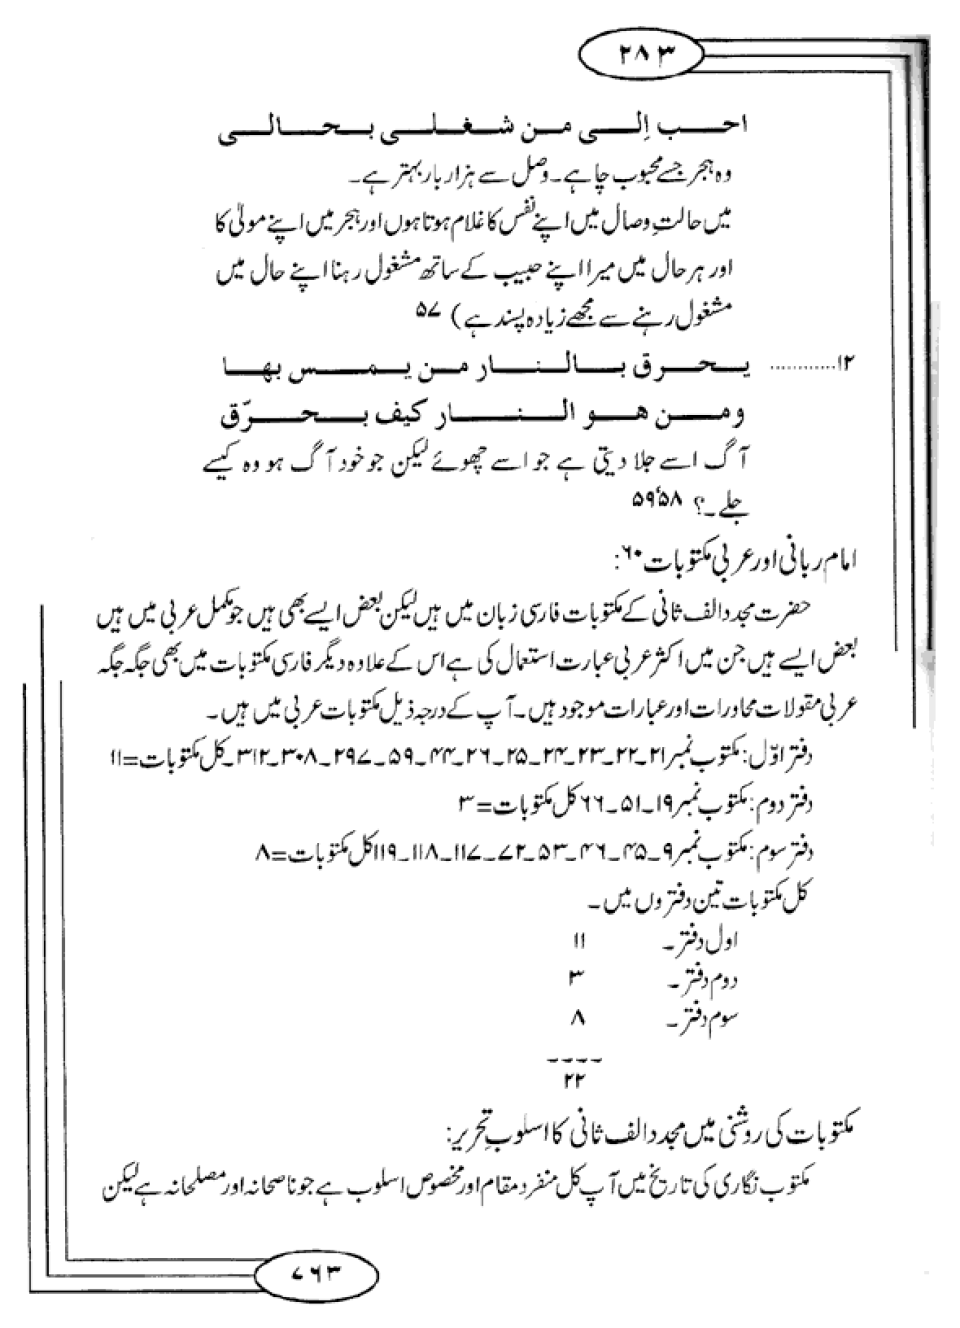 ۲۸۳
احب إلی من شغلی بحالی
وہ ہجر جسے محبوب چاہے۔ وصل سے ہزار بار بہتر ہے۔
میں حالتِ وصال میں اپنے نفس کا غلام ہوتا ہوں اور ہجر میں اپنے مولیٰ کا
اور ہر حال میں میرا اپنے حبیب کے ساتھ مشغول رہنا اپنے حال میں
مشغول رہنے سے مجھے زیادہ پسند ہے) ۵۷
۱۲............ یحرق بالنار من یمس بھا
ومن ھو النار کیف بحرّق
آگ اسے جلا دیتی ہے جو اسے چھوئے لیکن جو خود آگ ہو وہ کیسے
جلے۔؟ ۵۹٬۵۸
امام ربانی اور عربی مکتوبات ۶۰:
حضرت مجدد الف ثانی کے مکتوبات فارسی زبان میں ہیں لیکن بعض ایسے بھی ہیں جو مکمل عربی میں ہیں
بعض ایسے ہیں جن میں اکثر عربی عبارت استعمال کی ہے اس کے علاوہ دیگر فارسی مکتوبات میں بھی جگہ جگہ
عربی مقولات محاورات اور عبارات موجود ہیں۔ آپ کے درجہ ذیل مکتوبات عربی میں ہیں۔
دفتر اوّل: مکتوب نمبر ۲۱۔۲۲۔۲۳۔۲۴۔۲۵۔۲۶۔۴۴۔۵۹۔۲۹۷۔۳۰۸۔۳۱۲۔ کل مکتوبات=۱۱
دفتر دوم: مکتوب نمبر ۱۹۔۵۱۔۶۶ کل مکتوبات=۳
دفتر سوم: مکتوب نمبر ۹۔۴۵۔۴۶۔۵۳۔۷۲۔۱۱۷۔۱۱۸۔۱۱۹ کل مکتوبات=۸
کل مکتوبات تین دفتروں میں۔
اول دفتر۔ ۱۱
دوم دفتر۔ ۳
سوم دفتر۔ ۸
----
۲۲
مکتوبات کی روشنی میں مجدد الف ثانی کا اسلوبِ تحریر:
مکتوب نگاری کی تاریخ میں آپ کل منفرد مقام اور مخصوص اسلوب ہے جو ناصحانہ اور مصلحانہ ہے لیکن
۷۶۳